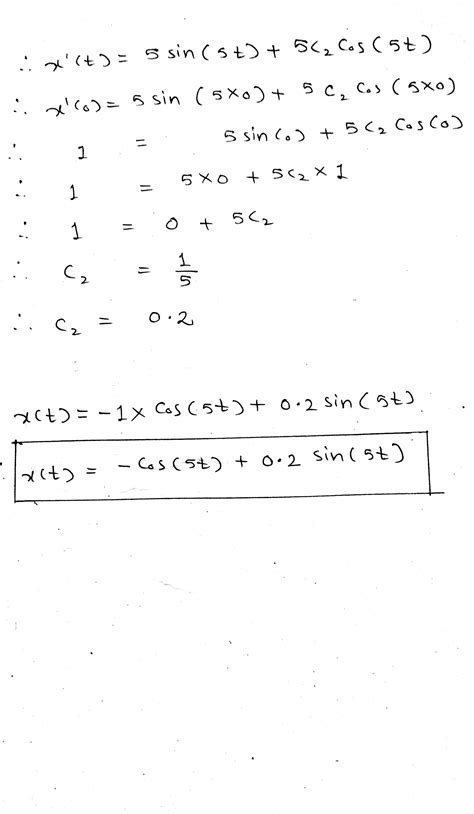 ∴ x'(t) = 5 sin(5t) + 5C₂ Cos(5t)
∴ x'(0) = 5 sin (5×0) + 5 C₂ Cos (5×0)
∴ 1 = 5 sin(0) + 5C₂ Cos(0)
∴ 1 = 5×0 + 5C₂ × 1
∴ 1 = 0 + 5C₂
∴ C₂ = 1/5
∴ C₂ = 0.2
x(t) = -1× Cos(5t) + 0.2 sin(5t)
x(t) = - Cos(5t) + 0.2 sin(5t)